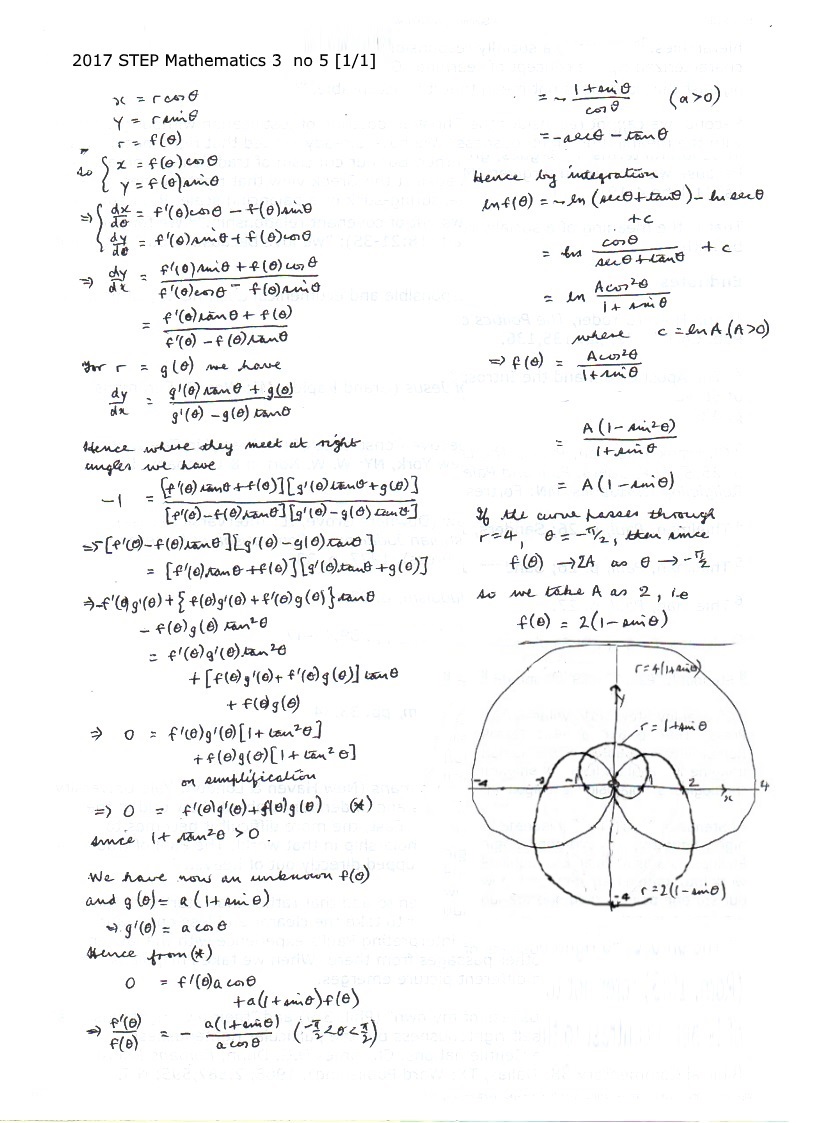 2017 STEP Mathematics 3 no 5 [1/1]
x = r cos θ
y = r sin θ
r = f(θ)
so { x = f(θ) cos θ
y = f(θ) sin θ
⇒ { dx/dθ = f'(θ) cos θ − f(θ) sin θ
dy/dθ = f'(θ) sin θ + f(θ) cos θ
⇒ dy/dx = (f'(θ) sin θ + f(θ) cos θ)/(f'(θ) cos θ − f(θ) sin θ)
= (f'(θ) tan θ + f(θ))/(f'(θ) − f(θ) tan θ)
For r = g(θ) we have
dy/dx = (g'(θ) tan θ + g(θ))/(g'(θ) − g(θ) tan θ)
Hence where they meet at right
angles we have
−1 = [f'(θ) tan θ + f(θ)][g'(θ) tan θ + g(θ)]/[f'(θ) − f(θ) tan θ][g'(θ) − g(θ) tan θ]
⇒ −[f'(θ) − f(θ) tan θ][g'(θ) − g(θ) tan θ]
= [f'(θ) tan θ + f(θ)][g'(θ) tan θ + g(θ)]
⇒ −f'(θ)g'(θ) + {f(θ)g'(θ) + f'(θ)g(θ)} tan θ
− f(θ)g(θ) tan²θ
= f'(θ)g'(θ) tan²θ
+ [f(θ)g'(θ) + f'(θ)g(θ)] tan θ
+ f(θ)g(θ)
⇒ 0 = f'(θ)g'(θ)[1 + tan²θ]
+ f(θ)g(θ)[1 + tan²θ]
on simplification
⇒ 0 = f'(θ)g'(θ) + f(θ)g(θ) (*)
since 1 + tan²θ > 0.
We have now an unknown f(θ)
and g(θ) = a(1 + sin θ)
⇒ g'(θ) = a cos θ
Hence from (*)
0 = f'(θ) a cos θ
+ a(1 + sin θ) f(θ)
⇒ f'(θ)/f(θ) = − a(1 + sin θ)/(a cos θ) (−π/2 < θ < π/2)
= − (1 + sin θ)/cos θ (a > 0)
= −sec θ − tan θ
Hence by integration
ln f(θ) = −ln (sec θ + tan θ) − ln sec θ
+ c
= ln cos θ/(sec θ + tan θ) + c
= ln A cos²θ/(1 + sin θ)
where c = ln A (A > 0)
⇒ f(θ) = A cos²θ/(1 + sin θ)
= A(1 − sin²θ)/(1 + sin θ)
= A(1 − sin θ)
If the curve passes through
r = 4, θ = −π/2, then since
f(θ) → 2A as θ → −π/2
so we take A as 2, i.e
f(θ) = 2(1 − sin θ)
r = 4(1 + sin θ)
y
r = 1 + sin θ
−4 −2 −1 0 1 2 x 4
−4
r = 2(1 − sin θ)